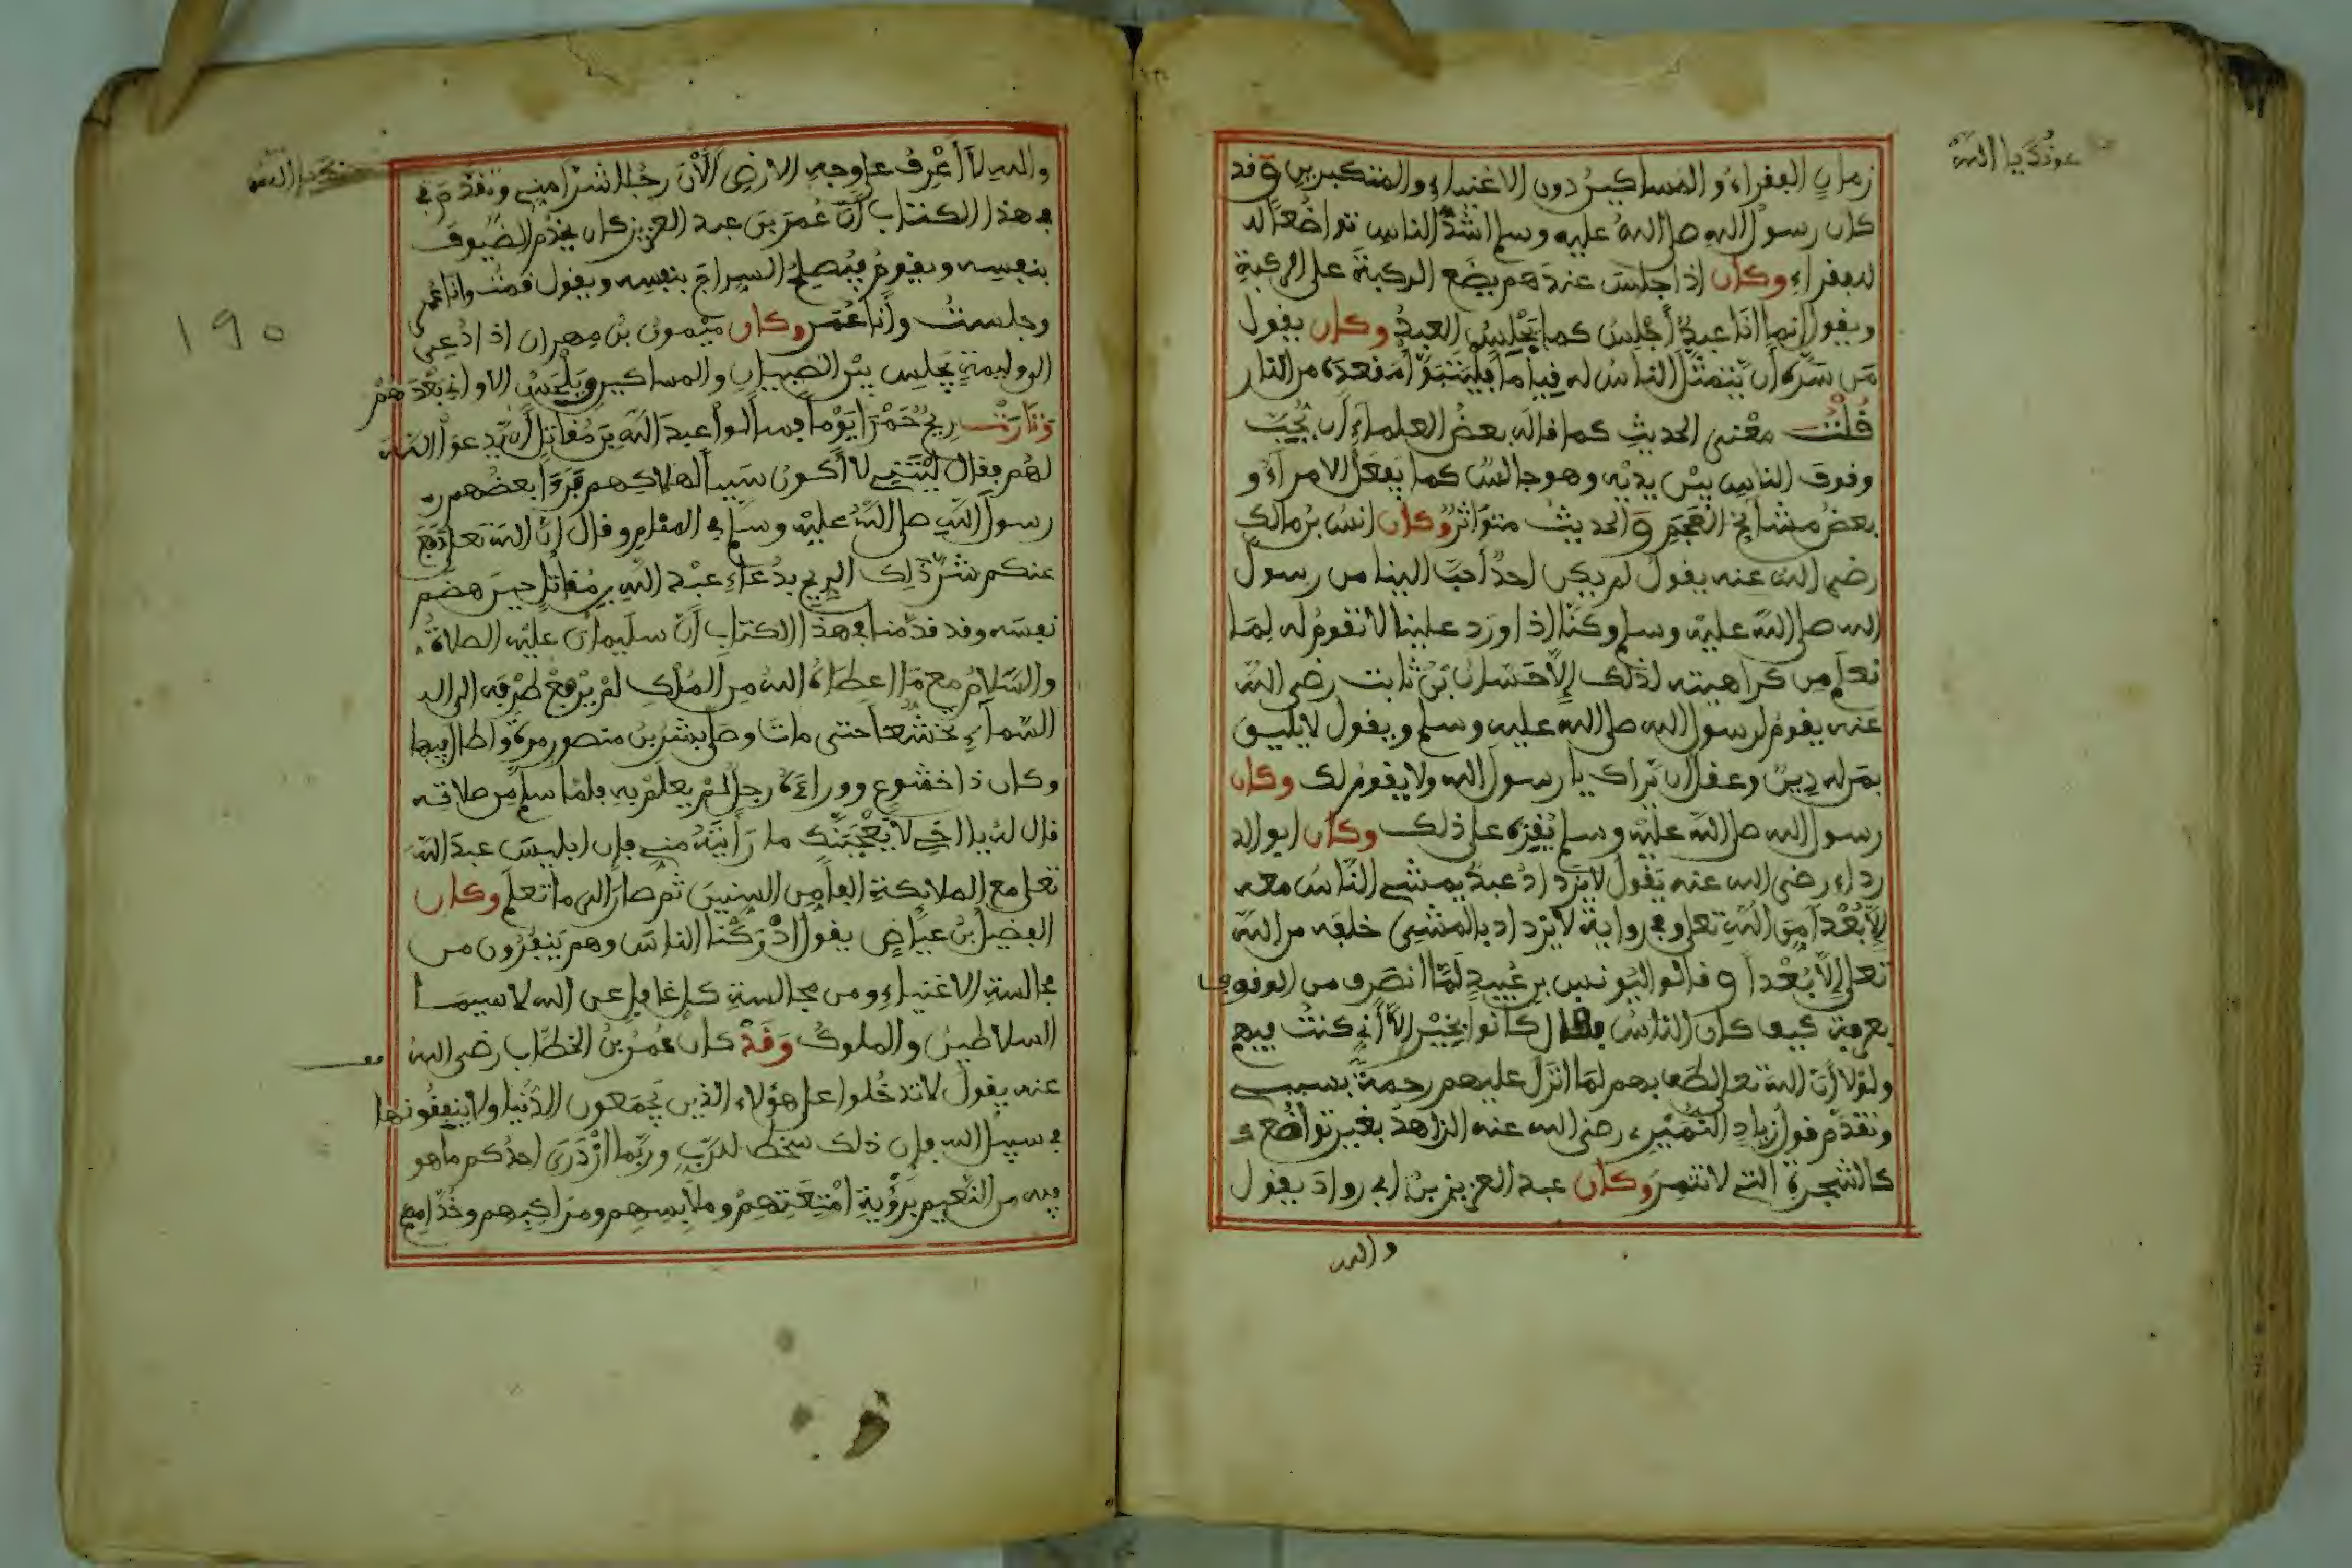 عونك يا الله
زمانِ الفقراءُ والمساكينُ دون الاغنياءِ والمتكبرين وقد
كان رسول الله صلى الله عليه وسلم اشدَّ الناس تواضُعاً لله
للفقراءِ وكان اذا جلس عندهم يضَع الركبةَ على الركبةِ
ويقول انما انَا عبدٌ أجْلِسُ كما يَجْلِسُ العبدُ وكان يقول
مَن سَرَّه أن يتمثَّل الناسُ له قياماً فليَتبوَّأ مَقعدَه من النار
قُلْتُ معْنى الحديثِ كما قاله بعضُ العلماءِ أن يُحِبَّ
وقوف الناسِ بيْن يديْه وهو جالسٌ كما يَفعَل الامراءُ و
بعضُ مشايخ العَجَم وَالحديثُ متوَاترٌ وكان انسُ بن مالك
رضي الله عنه يقول لم يكن احدٌ أحبَّ الينا من رسول
الله صلى الله عليْه وسلم وكنَّا اذا ورَد علينا لا نقومُ له لِمَا
نعلم من كراهيته لذلك إلاَّ حَسَّانُ بْنُ ثابت رضي الله
عنه يقومُ لرسول الله صلى الله عليه وسلم ويقول لا يليق
بمَن له دِينٌ وعقل ان يَراك يا رسول الله ولا يقومُ لك وكان
رسول الله صلى الله عليْه وسلم يُقِرّه على ذلك وكان ابو الد
رداء رضي الله عنه يَقول لا يزدادُ عبدٌ يمشي النَّاسُ معه
إلاَّ بُعْداً مِنَ اللهِ تعلى وفي روايةٍ لا يَزداد بالمشْيِ خلفه من الله
تعلى إلاَّ بُعْداً و قالوا ليُونسِ بن عُبيدٍ لَمَّا انصَرف من الوقوف
بعرفةَ كيف كان الناسُ فقال كانوا بخيْر إلاَّ أنِّي كنتُ فيهم
ولوْلا أنَّ الله تعلى لطَف بهم لمَا انزَل عليهم رحمةً بسببي
وتقدَّم قول زيادٍ النمَيْرِي رضي الله عنه الزاهدُ بغير تواضُع
كالشجرةِ التي لا تثمِرُ وكان عبد العزيز بنُ ابي روادَ يقول
والله
والله لا أعْرِفُ على وجهِ الارضِ الأنَ رجُلا اشرَّ منِّي وتقدَّم في
في هذا الكتاب أنَّ عُمَرَ بنَ عبد العزيز كان يخدُم الضُّيوفَ
بنفسِه ويقومُ فيُصلِحُ السراجَ بنفسه ويقول قمتُ وانا عُمر
وجلستُ وأنا عُمَر وكان مَيْمونُ بْنُ مِهران اذا دُعِيَ
الى وليمةٍ يجلس بيْن الصبيانِ والمساكين ويَلْحَسُ الاواني بعْدَهمْ
وَثارَتْ ريحٌ حَمْرَا يَوْماً فسألوا عبدَ الله بنَ مُقاتلٍ أن يّدعوَ الله
لهُم فقال لَيْتَني لا أكونُ سَبباً لهلاكِهم فرَءَا بعضُهم
رسولَ الله صلى اللهُ عليْه وسلم في المنام وقال انَّ الله تعلى دفَع
عنكم شرَّ ذلِك الريحِ بدُعاءِ عبْدِ اللهِ بن مُقاتلٍ حينَ هضَم
نفسَه وقد قدَّمنا في هذا الكتابِ أنَّ سليمانَ عليْه الصلاةُ
والسَّلامُ مع مَا اعطاهُ اللهُ مِن المُلكِ لمْ يَرْفعْ طرْفه الى
السَّمآءِ تخشُّعاً حتى ماتَ وصَلى بشْرُ بن منصور مرةً واطال فيها
وكان ذا خشوع ووراءَه رجلٌ لمْ يعلمْ به فلمّا سلم من صلاته
قال له يا اخي لا يُعْجِبَنَّكَ ما رَأيْتَه منِّي فإن ابليسَ عبدَ الله
تعلى مع الملائكةِ الفاً من السنينَ ثم صارَ الى ما تعلَم وكان
الفضيل بْنُ عيَاضٍ يقول ادْرَكْنا الناسَ وهم يَنفِرُون من
مجالسةِ الاغنياءِ ومن مجالسةِ كل غافِلٍ عن الله لا سيمَا
السلاطين والملوك وَقَدْ كان عُمَرُ بنُ الخطَّابِ رضي الله
عنه يقول لا تدخُلوا على هؤلاءِ الذين يَجمَعون الدّنْيا ولا ينفقونها
في سبيل الله فإن ذلك سخطٌ للرَّبِّ وربَّما ازْدَرَى احدُكم ما هو
فيه من النَّعيم برؤْيةِ امْتِعَتِهِمْ وملابِسِهم ومَراكِبِهم وخُدَّامِهم
١٩٥